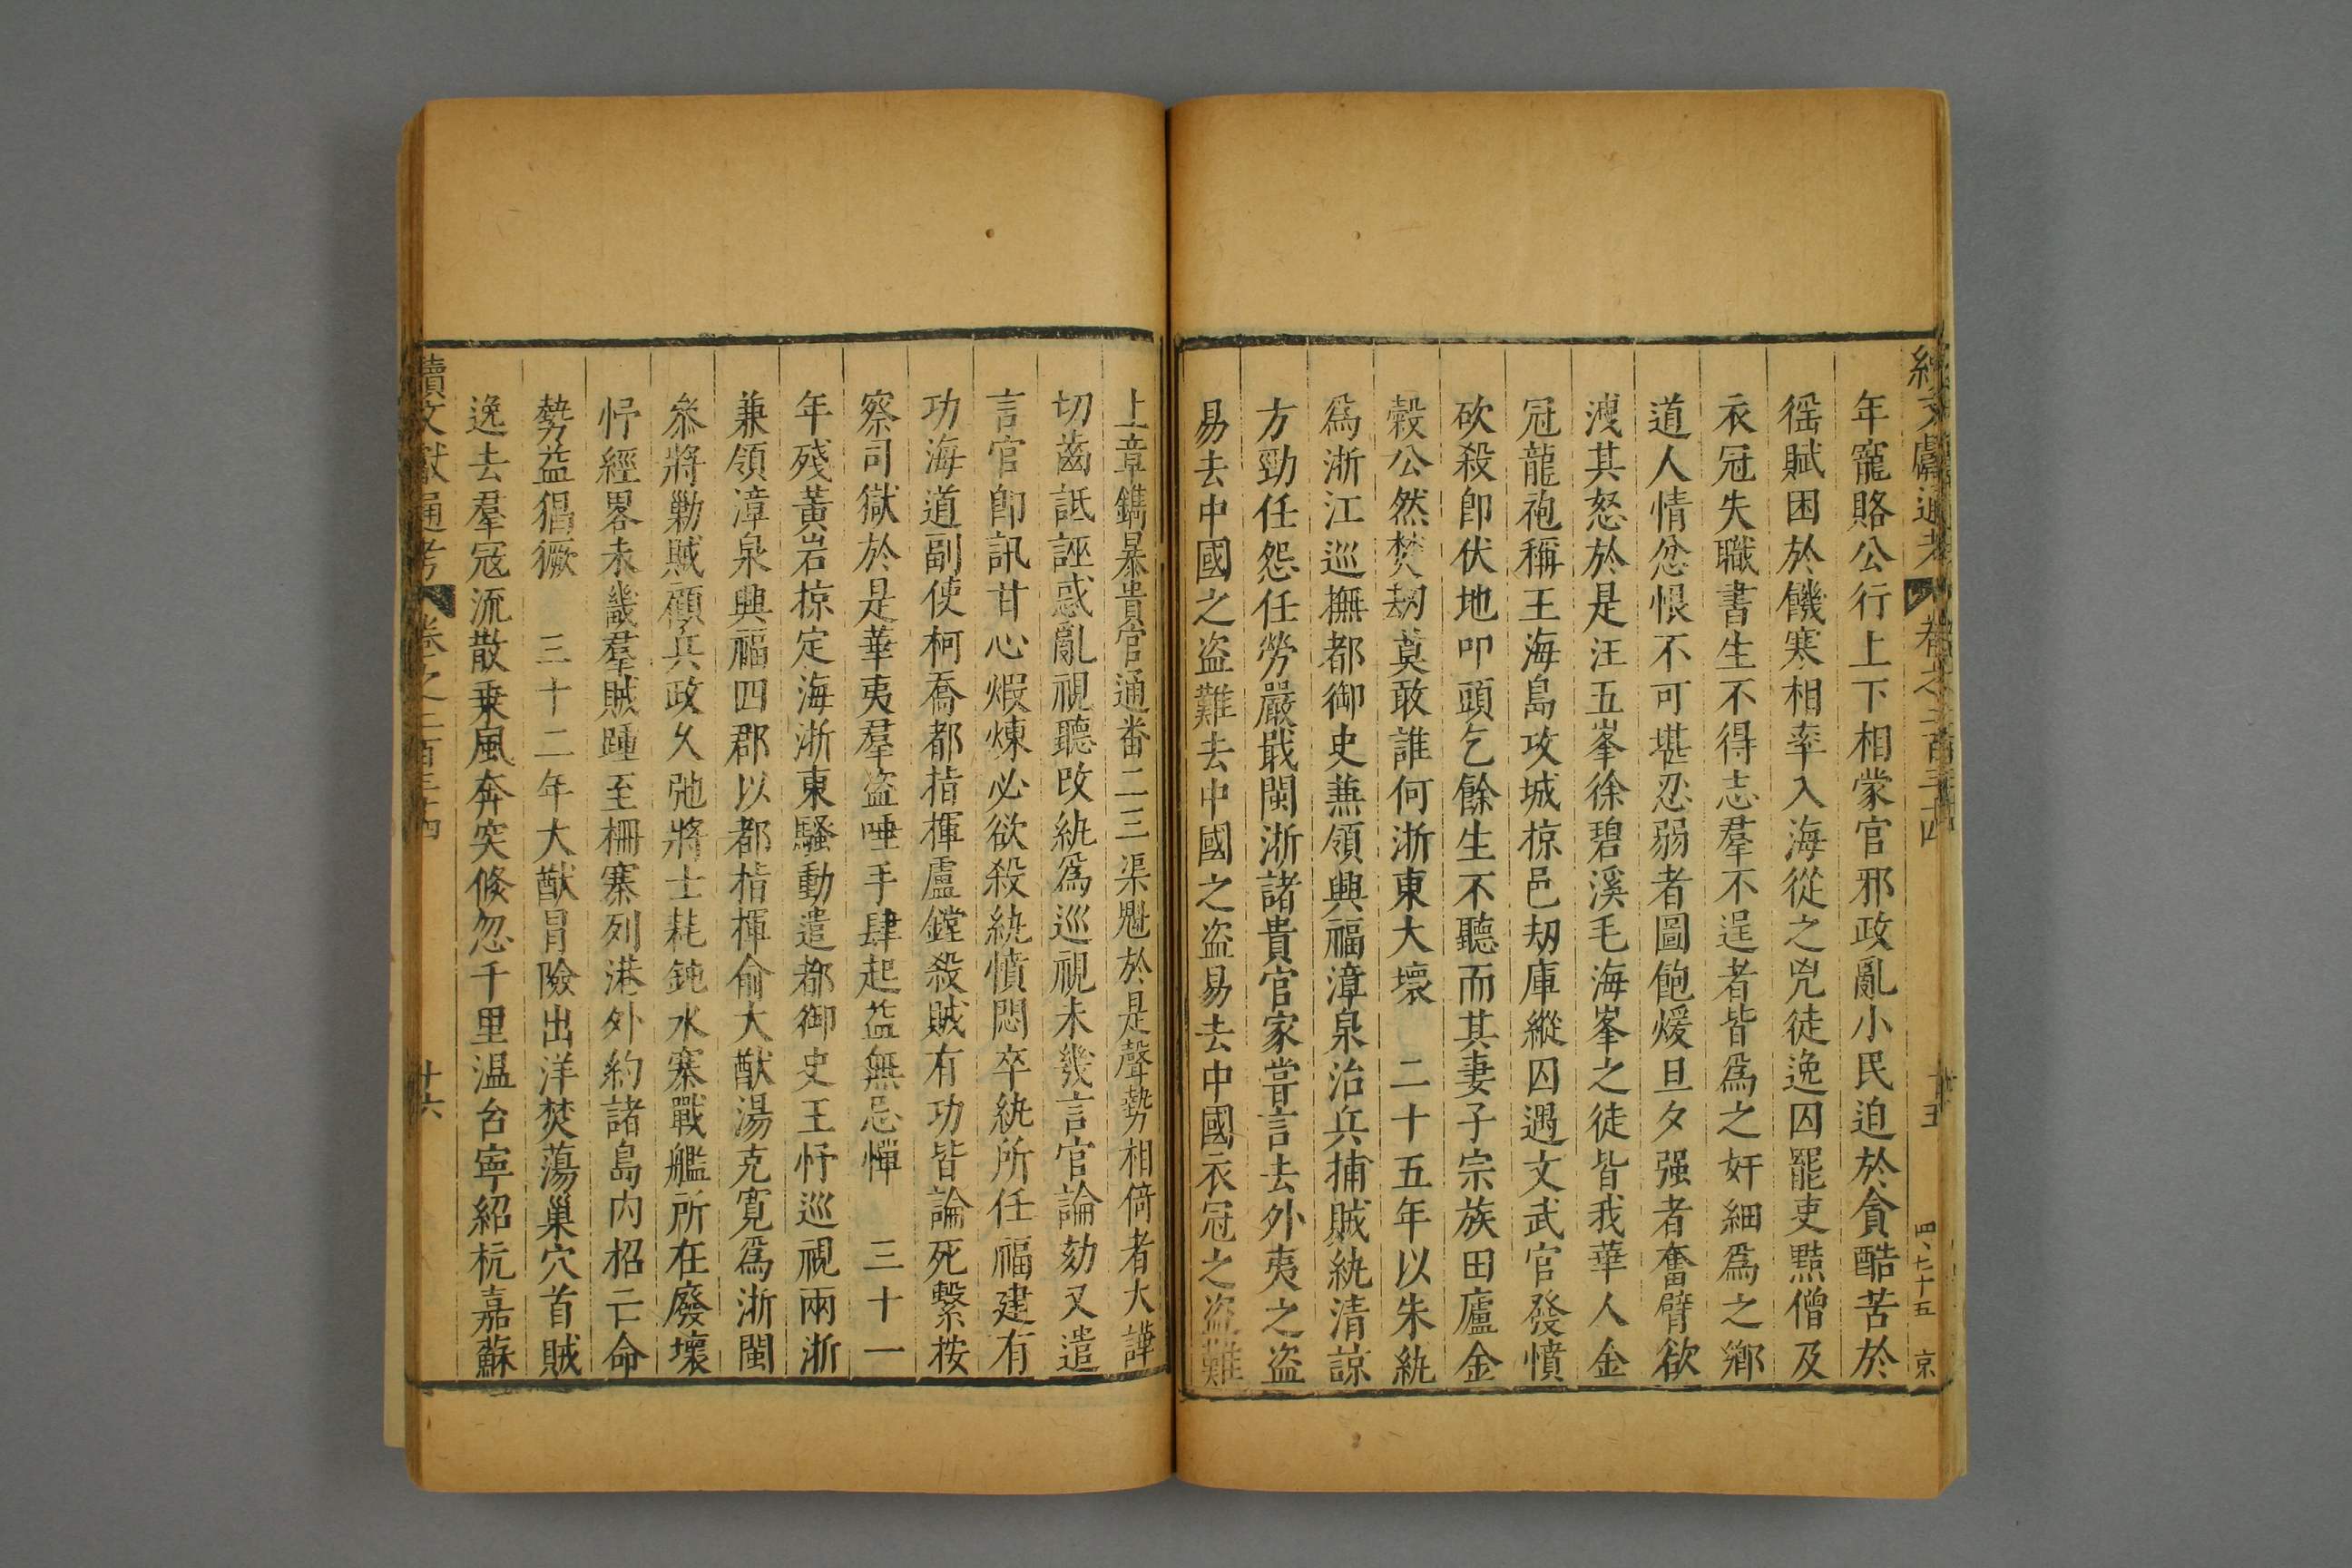 續文獻通考 卷之二百三十四 廿五 四、七十五 京
年寵賂公行上下相蒙官邪政亂小民迫於貪酷苦於
徭賦困於饑寒相率入海從之兇徒逸囚罷吏黠僧及
衣冠失職書生不得志羣不逞者皆爲之奸細爲之鄉
道人情忿恨不可堪忍弱者圖飽煖旦夕强者奮臂欲
洩其怒於是汪五峯徐碧溪毛海峯之徒皆我華人金
冠龍袍稱王海島攻城掠邑刼庫縱囚遇文武官發憤
砍殺卽伏地叩頭乞餘生不聽而其妻子宗族田廬金
穀公然焚刼莫敢誰何浙東大壞 二十五年以朱紈
爲浙江巡撫都御史兼領興福漳泉治兵捕賊紈清諒
方勁任怨任勞嚴戢閩浙諸貴官家嘗言去外夷之盜
易去中國之盜難去中國之盜易去中國衣冠之盜難
上章鐫暴貴官通番二三渠魁於是聲勢相倚者大譁
切齒詆誣惑亂視聽改紈爲巡視未幾言官論劾又遣
言官卽訊甘心煆煉必欲殺紈憤悶卒紈所任福建有
功海道副使柯喬都指揮盧鏜殺賊有功皆論死繫按
察司獄於是華夷羣盜唾手肆起益無忌憚 三十一
年殘黃岩掠定海浙東騷動遣都御史王忬巡視兩浙
兼領漳泉興福四郡以都指揮俞大猷湯克寛爲浙閩
叅將勦賊顧兵政久弛將士耗鈍水寨戰艦所在廢壞
忬經畧未畿羣賊踵至柵寨列港外約諸島内招亡命
勢益猖獗 三十二年大猷冐險出洋焚蕩巢穴首賊
逸去羣冦流散乗風奔突倐忽千里温台寧紹杭嘉蘇
續文獻通考 卷之二百三十四 廿六